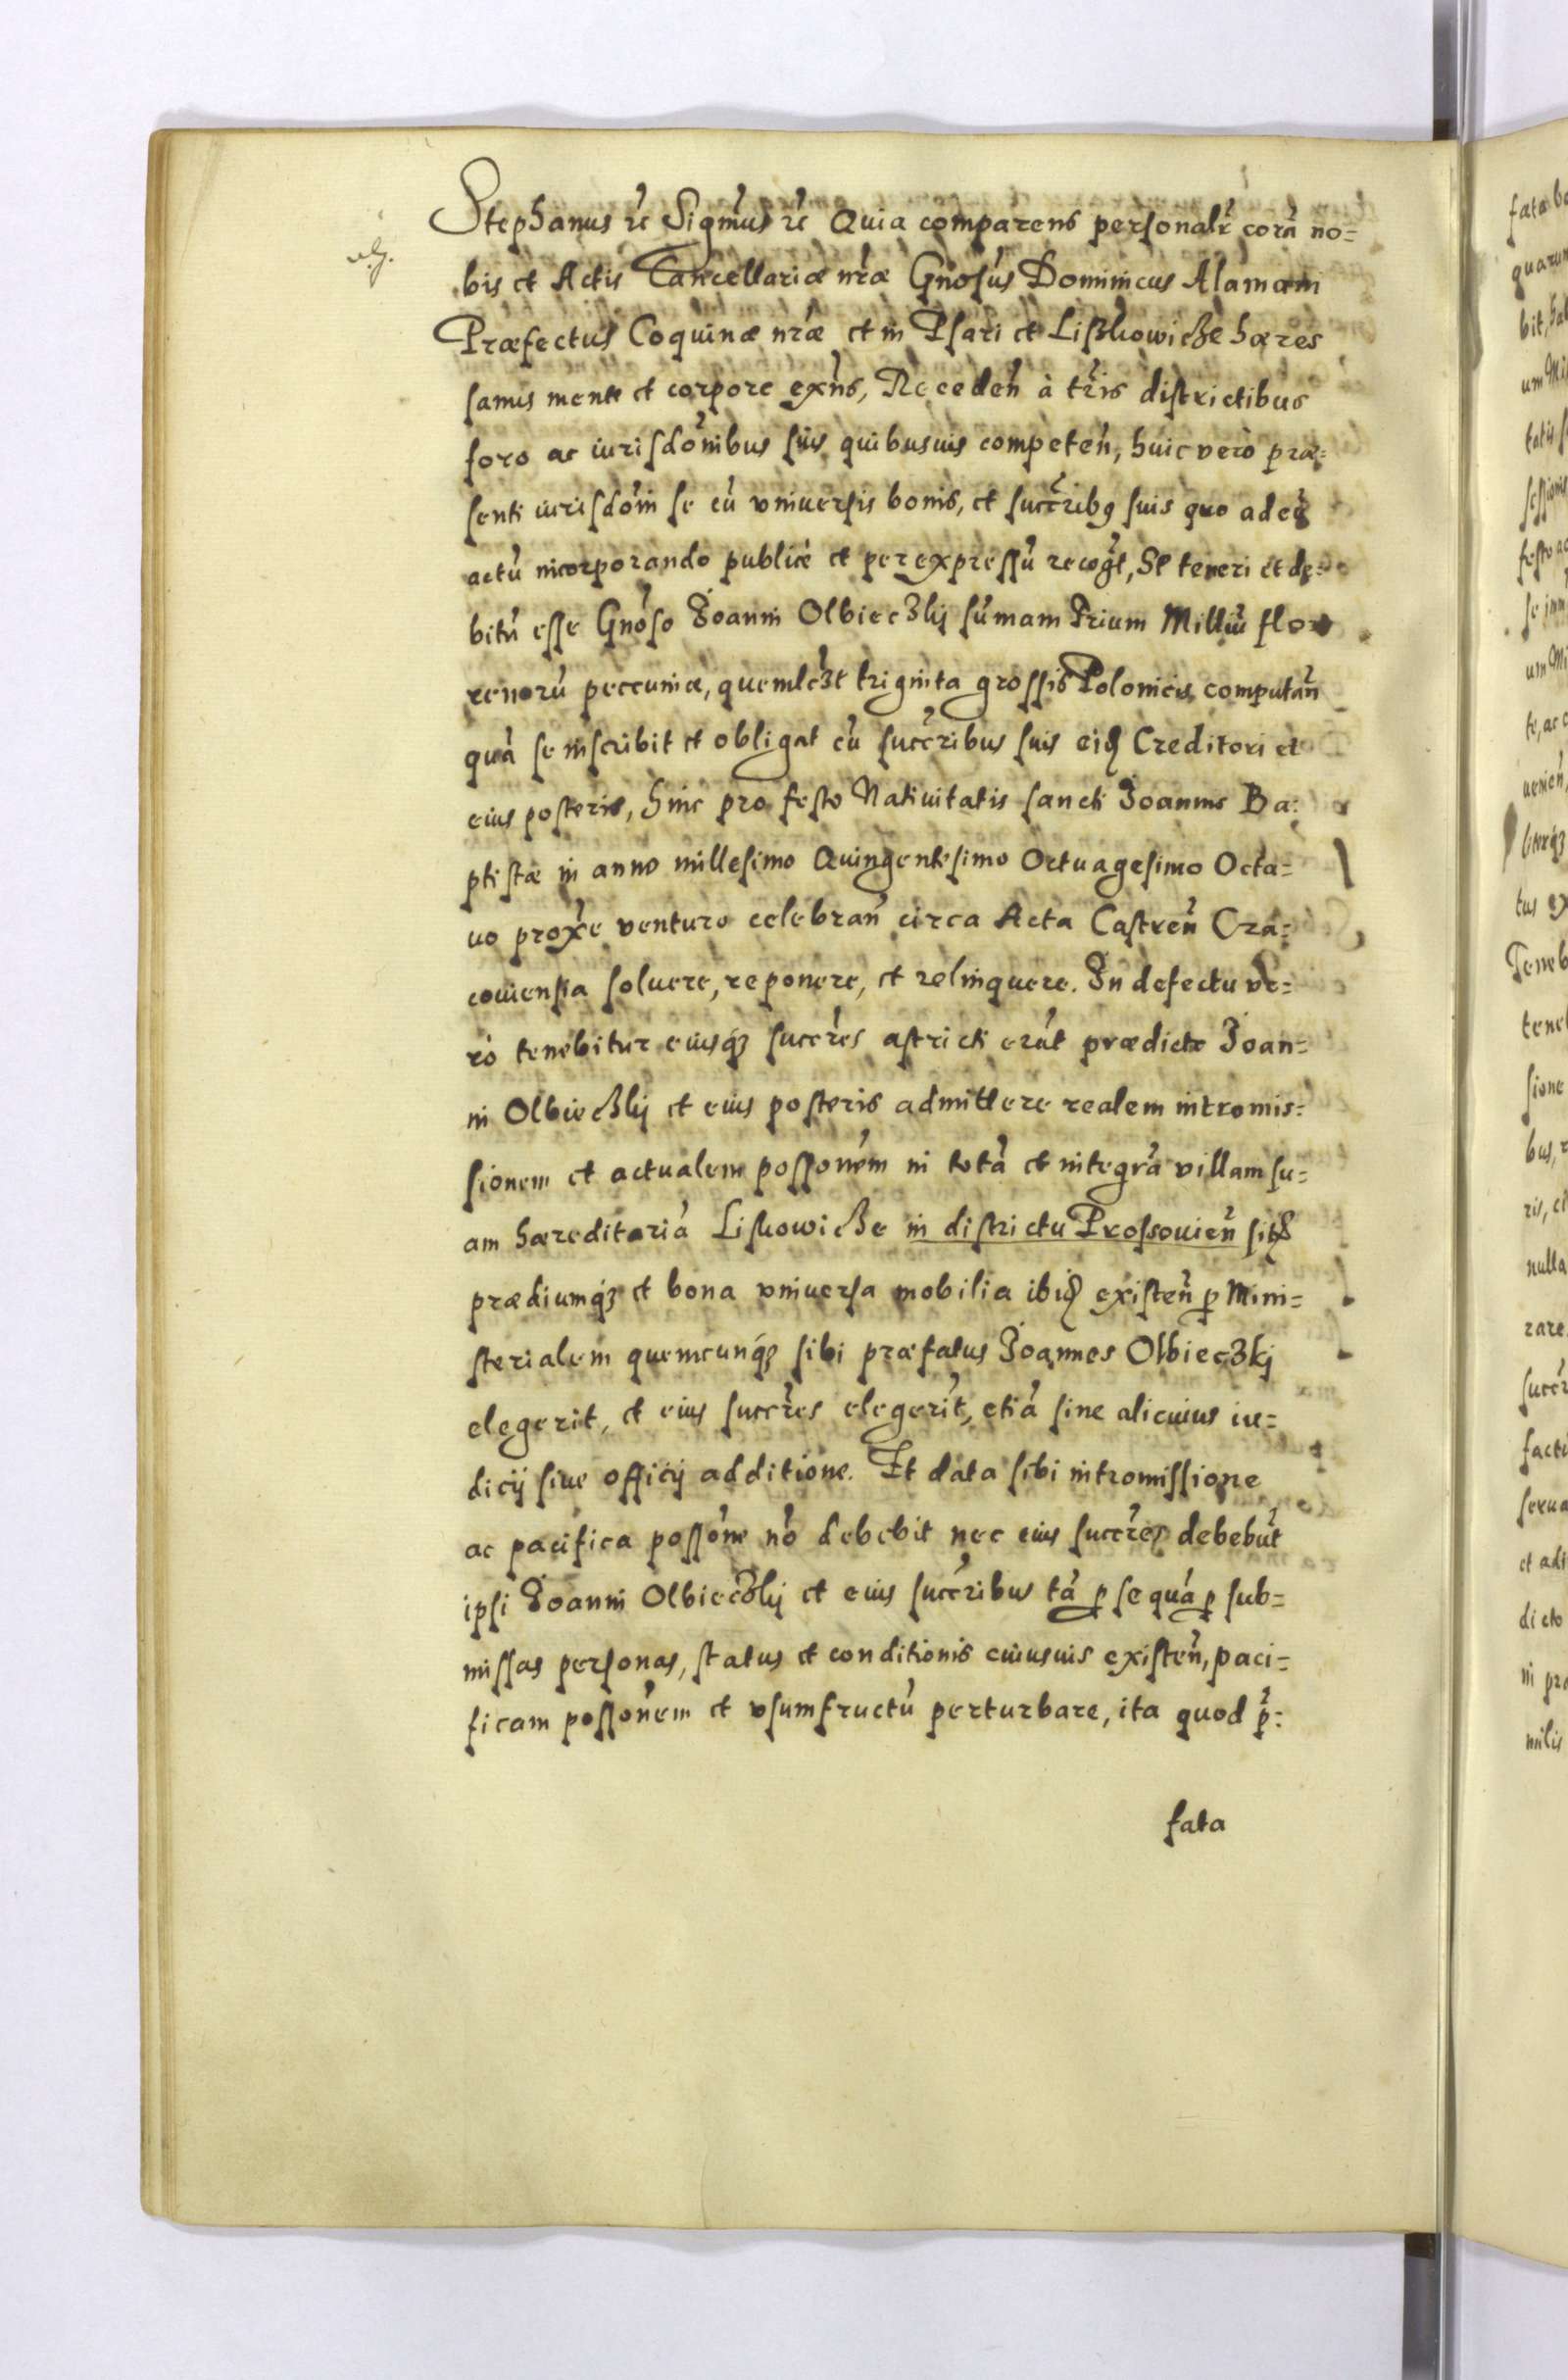 Stephanus etc Sigmus etc Quia comparens personalr corā no=
bis et Actis Cancellariæ nræ Gnosus Dominicus Alamani
Præfectus Coquinæ nræ et in Psari et Lißkowicze hæres
sanus mente et corpore exns, Receden à tris districtibus
foro ac iurisdonibus suis quibusuis competen, huic vero præ=
senti iurisdoni se cū vniuersis bonis, et succribq suis quo ad
actū incorporando publicè et per expressū recogt, Se teneri et de=
bitū esse Gnoso Joanni Olbieczkij sūmam Trium Milliū flo=
renorū peccuniæ, quemlczt triginta grossis Polonicis computan
quā se inscribit et obligat cū succribus suis eid Creditori et
eius posteris, hinc pro festo Natiuitatis sancti Joannis Ba:
ptistæ in anno millesimo Quingentesimo Octuagesimo Octa=
uo proxe venturo celebran circa Acta Castren Cra=
couiensia soluere, reponere, et relinquere. In defectu ve=
rò tenebitur eiusq3 succres astricti erūt prædicto Joan=
ni Olbieczkij et eius posteris admittere realem intromis=
sionem et actualem possonem in totā et integrā villam su=
am hæreditariā Liskowicze in districtu Prossouien sitā
prædiumq3 et bona vniuersa mobilia ibid existen p Mini=
sterialem quemcunq3 sibi præfatus Joannes Olbieczkj
elegerit, et eius succres elegerit, etiā sine alicuius iu=
dicij siue officij additione. Et data sibi intromissione
ac pacifica possone nō debebit nec eius succres debebūt
ipsi Joanni Olbieczkij et eius succribus tā p se quā p sub=
missas personas, status et conditionis cuiusuis existen, paci=
ficam possonem et vsumfructū perturbare, ita quod p:
fata